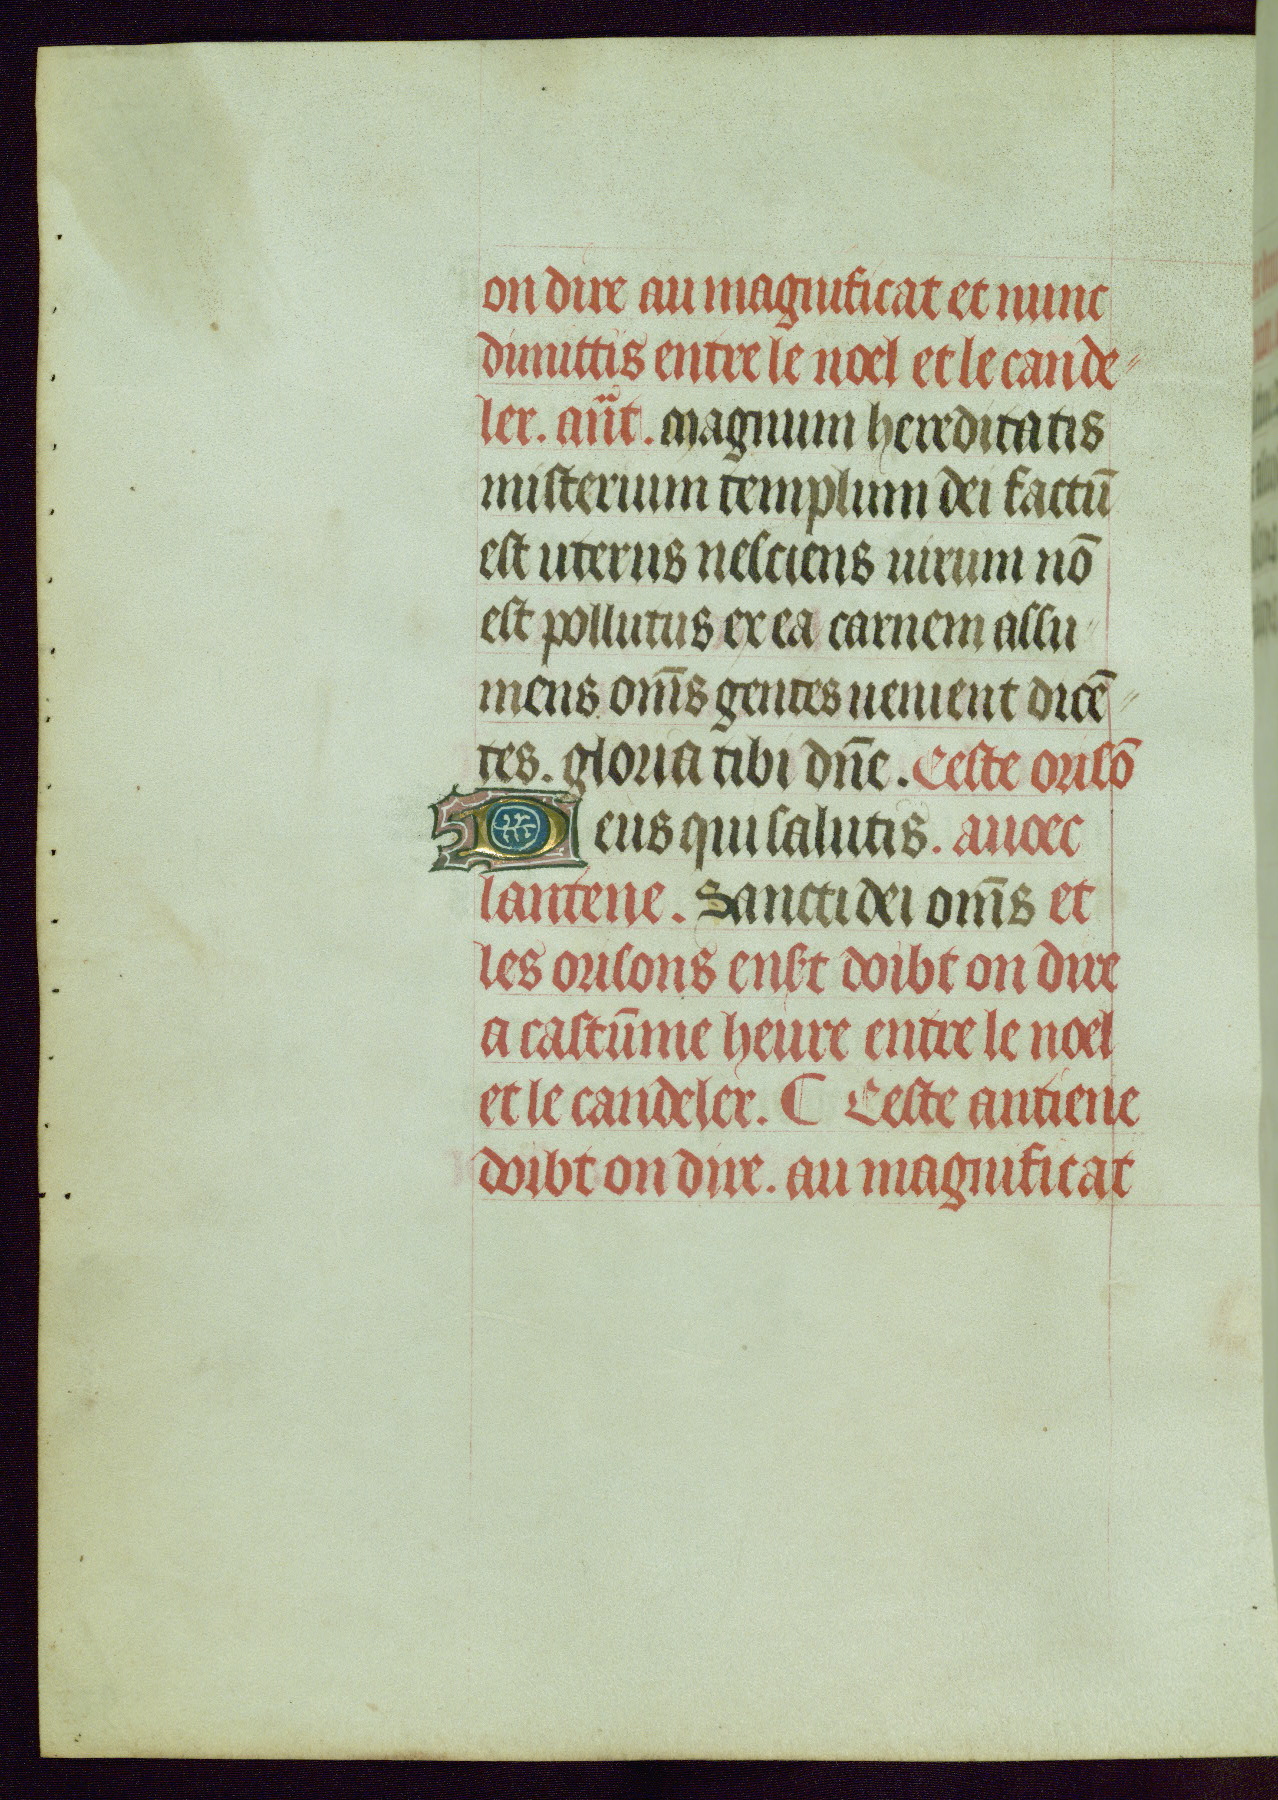 on dire au magnificat et nunc
dimittis entre le noel et le cande
ler. añt. magnum hereditatis
misterium templum dei factū
est uterus nesciens uirum nō
est pollutus ex ea carnem assu
mens om̄s gentes uenient dicē
tes. gloria tibi dn̄e. Ceste orisō
Deus qui salutis. auoec
lantene. Sancti dei om̄s et
les orisons enst doibt on dire
a castūme heure entre le noel
et le candeler. C Ceste antiene
doibt on dire. au magnificat